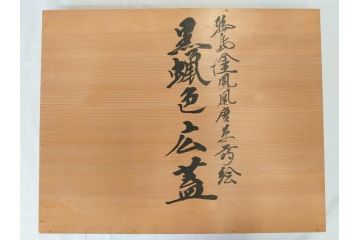 輪島塗鳳凰唐草蒔絵
黒蝋色広蓋